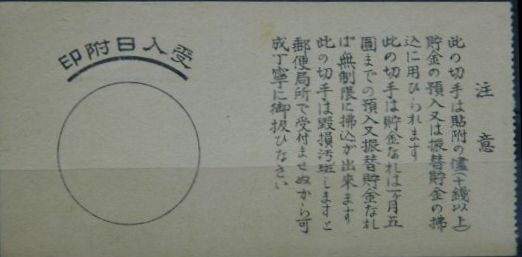 注意
此の切手は貼附の儘十錢以上
貯金の預入又は振替貯金の拂
込に用ひられます
此の切手は貯金なれは一ヶ月五
圓までの預入又振替貯金なれ
ば無制限に拂込が出來ます
此の切手は毀損汚斑しますと
郵便局所で受付ませぬから可
成丁寧に御扱ひなさい
受人日附印